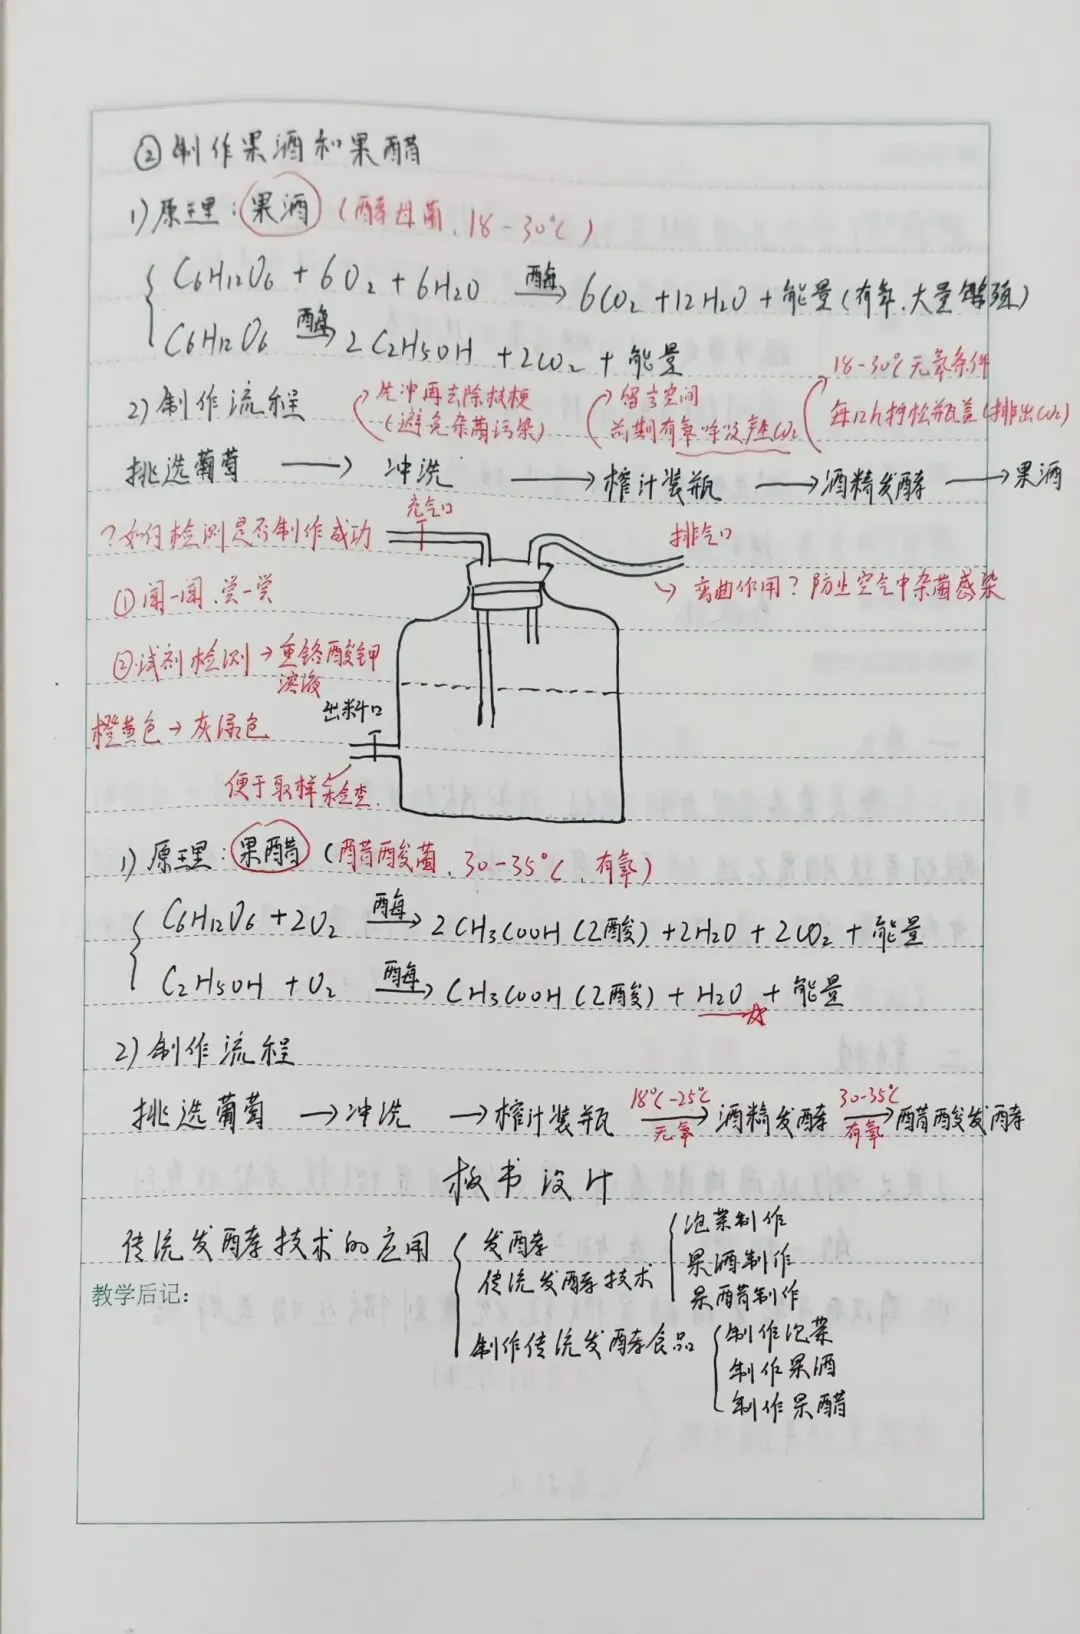 ②制作果酒和果醋
1)原理:果酒(酵母菌、18-30℃)
C6H12O6+6O2+6H2O 酶→ 6CO2+12H2O+能量(有氧、大量繁殖)
C6H12O6 酶→ 2C2H5OH+2CO2+能量
2)制作流程
先冲再去除枝梗
(避免杂菌污染)
留言空间
前期有氧呼吸产生CO2
18-30℃无氧条件
每12h拧松瓶盖(排出CO2)
挑选葡萄 → 冲洗 → 榨汁装瓶 → 酒精发酵 → 果酒
?如何检测是否制作成功
充气口
排气口
→弯曲作用?防止空气中杂菌感染
①闻一闻、尝一尝
②试剂检测→重铬酸钾
溶液
出料口
橙黄色→灰绿色
便于取样检查.
1)原理:果醋(醋酸菌、30-35℃、有氧)
C6H12O6+2O2 酶→ 2CH3COOH(乙酸)+2H2O+2CO2+能量
C2H5OH+O2 酶→ CH3COOH(乙酸)+H2O+能量
2)制作流程
挑选葡萄 → 冲洗 → 榨汁装瓶 18℃-25℃ 无氧→ 酒精发酵 30-35℃ 有氧→ 醋酸发酵
板书设计
传统发酵技术的应用
发酵
传统发酵技术
泡菜制作
果酒制作
果醋制作
制作传统发酵食品
制作泡菜
制作果酒
制作果醋
教学后记: